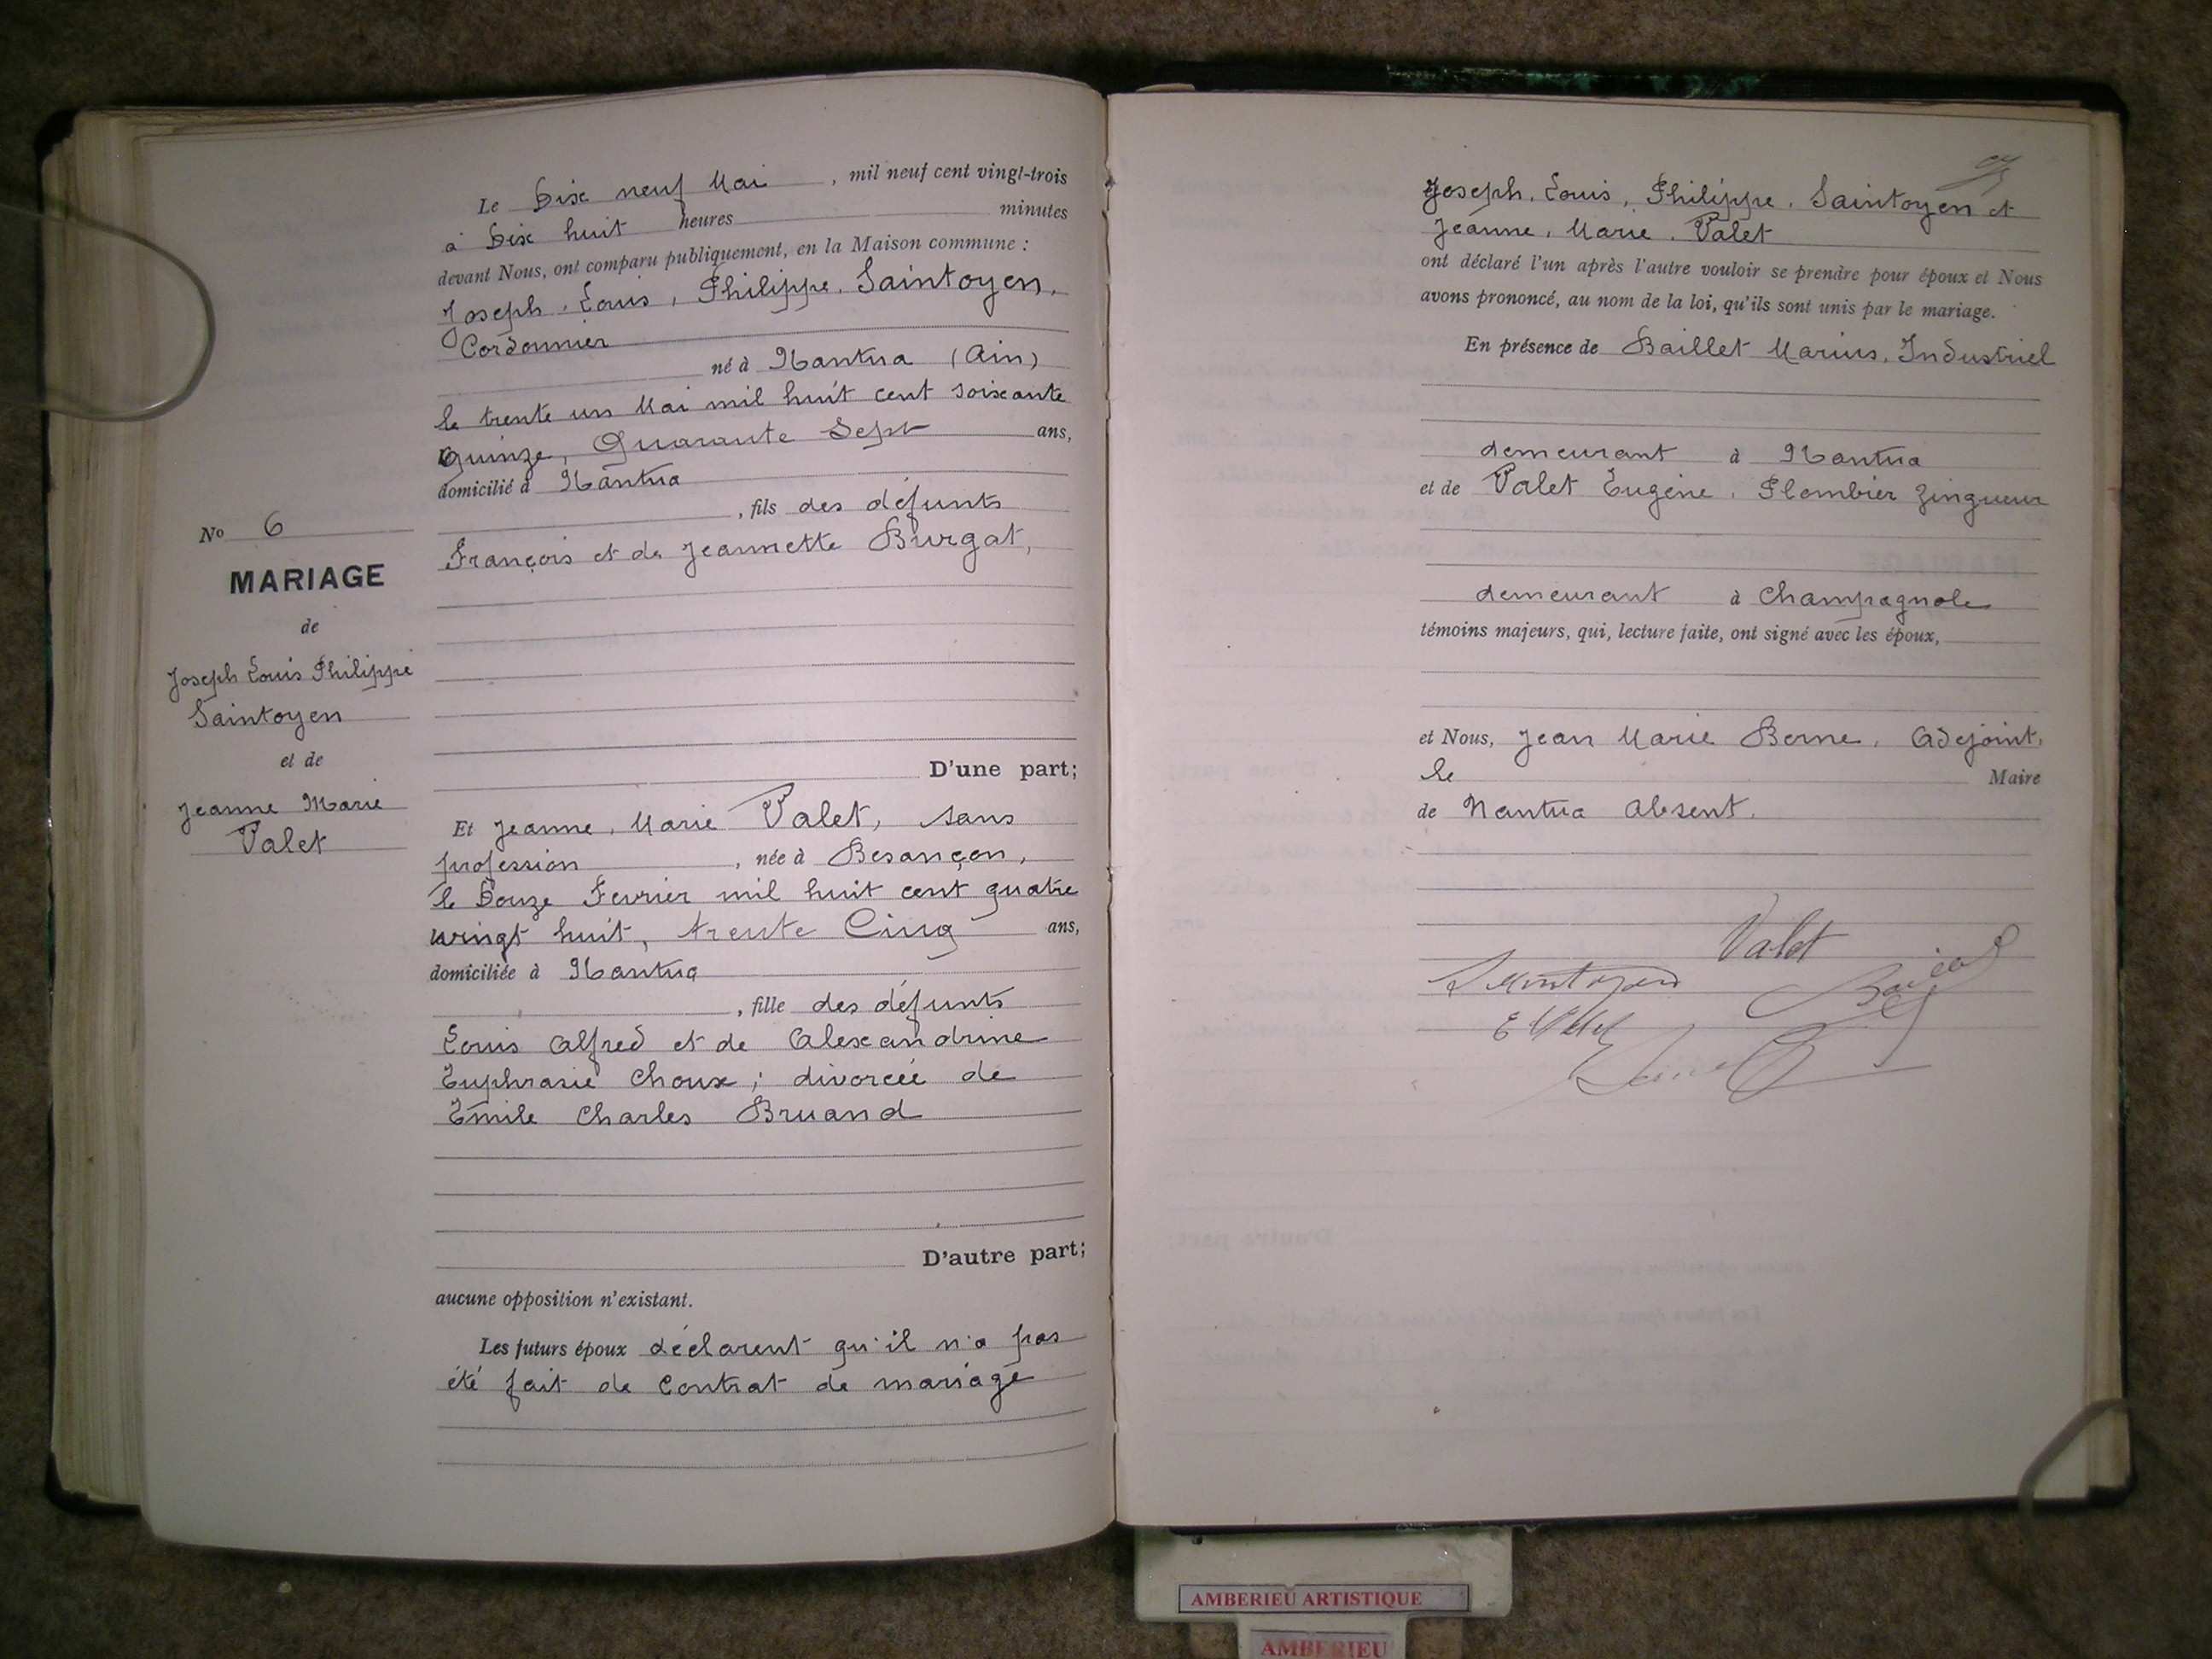 No 6
MARIAGE
de
Joseph Louis Philippe
Saintoyen
et de
Jeanne Marie
Valet
Le Dix neuf Mai , mil neuf cent vingt-trois
à Dix huit heures minutes
devant Nous, ont comparu publiquement, en la Maison commune :
Joseph, Louis, Philippe, Saintoyen,
Cordonnier
né à Nantua (Ain)
le trente un Mai mil huit cent soixante
quinze, Quarante Sept ans,
domicilié à Nantua
, fils des défunts
François et de Jeannette Burgat,
D'une part;
Et Jeanne, Marie Valet, sans
profession , née à Besançon,
le Douze Fevrier mil huit cent quatre
vingt huit, trente Cinq ans,
domiciliée à Nantua
, fille des défunts
Louis Alfred et de Alexandrine
Euphrasie Choux ; divorcée de
Emile Charles Bruand
D'autre part;
aucune opposition n'existant.
Les futurs époux déclarent qu'il n'a pas
été fait de Contrat de mariage
Joseph, Louis, Philippe, Saintoyen et
Jeanne, Marie, Valet
ont déclaré l'un après l'autre vouloir se prendre pour époux et Nous
avons prononcé, au nom de la loi, qu'ils sont unis par le mariage.
En présence de Baillet Marius, Industriel
demeurant à Nantua
et de Valet Eugène, Plombier Zingueur
demeurant à Champagnole
témoins majeurs, qui, lecture faite, ont signé avec les époux,
et Nous, Jean Marie Berne, Adejoint,
le Maire
de Nantua Absent.
Valet
Saintoyen
E Valet
AMBERIEU ARTISTIQUE
AMBERIEU